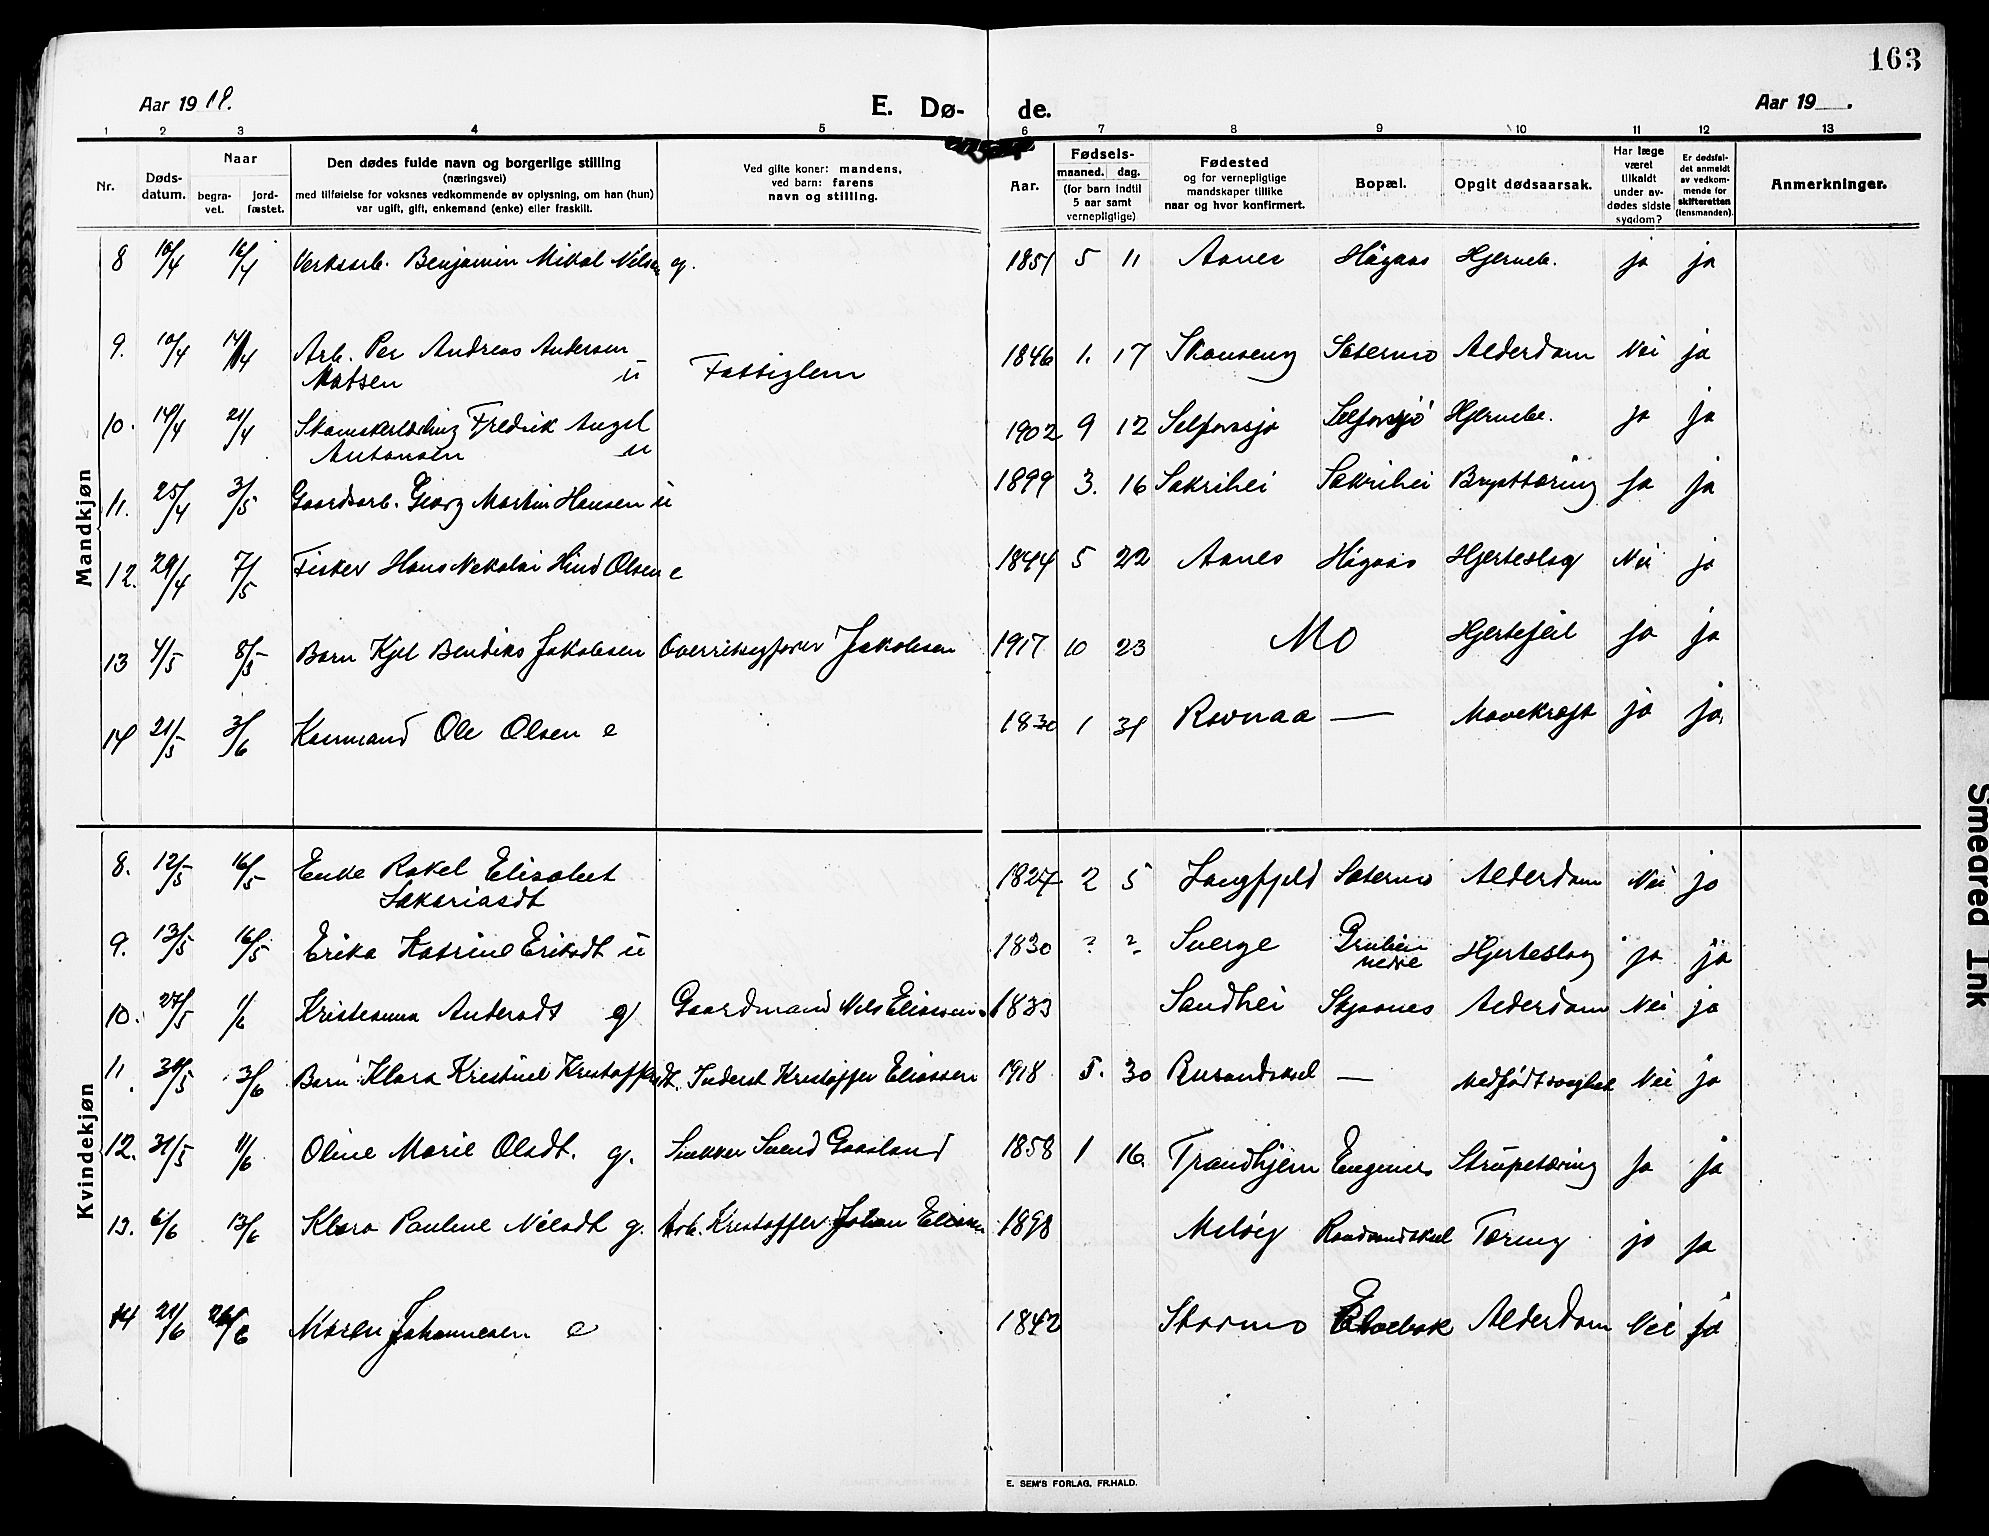 163
Aar 1918.
E. Dø-
de.
Aar 19 .
1 2 3 4 5 6 7 8 9 10 11 12 13
Nr.
Døds-
datum.
Naar
begra-
vet.
jord-
fæstet.
Den dødes fulde navn og borgerlige stilling
(næringsvei)
med tilføielse for voksnes vedkommende av oplysning, om han (hun)
var ugift, gift, enkemand (enke) eller fraskilt.
Ved gifte koner: mandens,
ved barn: farens
navn og stilling.
Aar.
Fødsels-
maaned. dag.
(for barn indtil
5 aar samt
vernepligtige)
Fødested
og for vernepligtige
mandskaper tillike
naar og hvor konfirmert.
Bopæl.
Opgit dødsaarsak.
Har læge
været
tilkaldt
under av-
dødes sidste
sygdom?
Er dødsfal-
det anmeldt
av vedkom-
mende for
skifteretten
(lensmanden).
Anmerkninger.
Mandkjøn
8 10/4 16/4 Verksarb. Benjamin Mikal Nilsen g. 1851 5 11 Aanes Høgaas Hjerneb. ja ja
9. 10/4 14/4 Arb. Per Andreas Andersen
Matsen u Fattiglem 1846 1. 17 Skonseng Sætermo Alderdom Nei ja
10. 14/4 21/4 Skomakerlærling Fredrik Angel
Antonsen u 1902 9 12 Selforssjø Selforssjø Hjernebe. ja ja
11. 25/4 3/5 Gaardsarb. Georg Martin Hansen u 1899 3. 16 Sakrihei Sakrihei Brysttæring Ja ja
12. 29/4 7/5 Fisker Hans Nekolai Hind Olsen e 1844 5 22 Aanes Høgaas Hjerteslag Nei ja
13 4/5 8/5 Barn Kjel Bendiks Jakobsen Overretssagfører Jakobsen 1917 10 23 Mo Hjertefeil Ja ja
14 21/5 3/6 Kaarmand Ole Olsen e 1830 1 31 Ravnaa — Mavekræft ja ja
Kvindekjøn
8. 12/5 16/5 Enke Rakel Elisabet
Sakariasdt 1827 2 5 Langfjeld Sætermo Alderdom Nei ja
9. 13/5 16/5 Erika Katrine Eriksdt u 1830 ? ? Sverge Gruben
nedre Hjerteslag ja ja
10. 27/5 1/6 Kristianna Andersdt g Gaardmand Nils Eliassen 1833 Sandhei Skjaanes Alderdom Nei ja
11. 31/5 3/6 Barn Klara Kristine Kristoffersdt. Inderst Kristoffer Eliassen 1918 5. 30 Ravandskul — Medfødt svaghet Nei ja
12. 31/5 11/6 Oline Marie Olsdt. g. Snekker Svend Gaasland 1858 1 16. Trondhjem Engenes Strupetæring Ja ja
13. 6/6 13/6 Klara Pauline Nilsdt g. Arb. Kristoffer Johan Eliassen 1898 Meløy Ravandskul Tæring ja ja
14 21/6 26/6 Maren Johannesen e 1842 Stormo Elvebak Alderdom Nei ja
E. SEM'S FORLAG, FR.HALD.
Smeared Ink